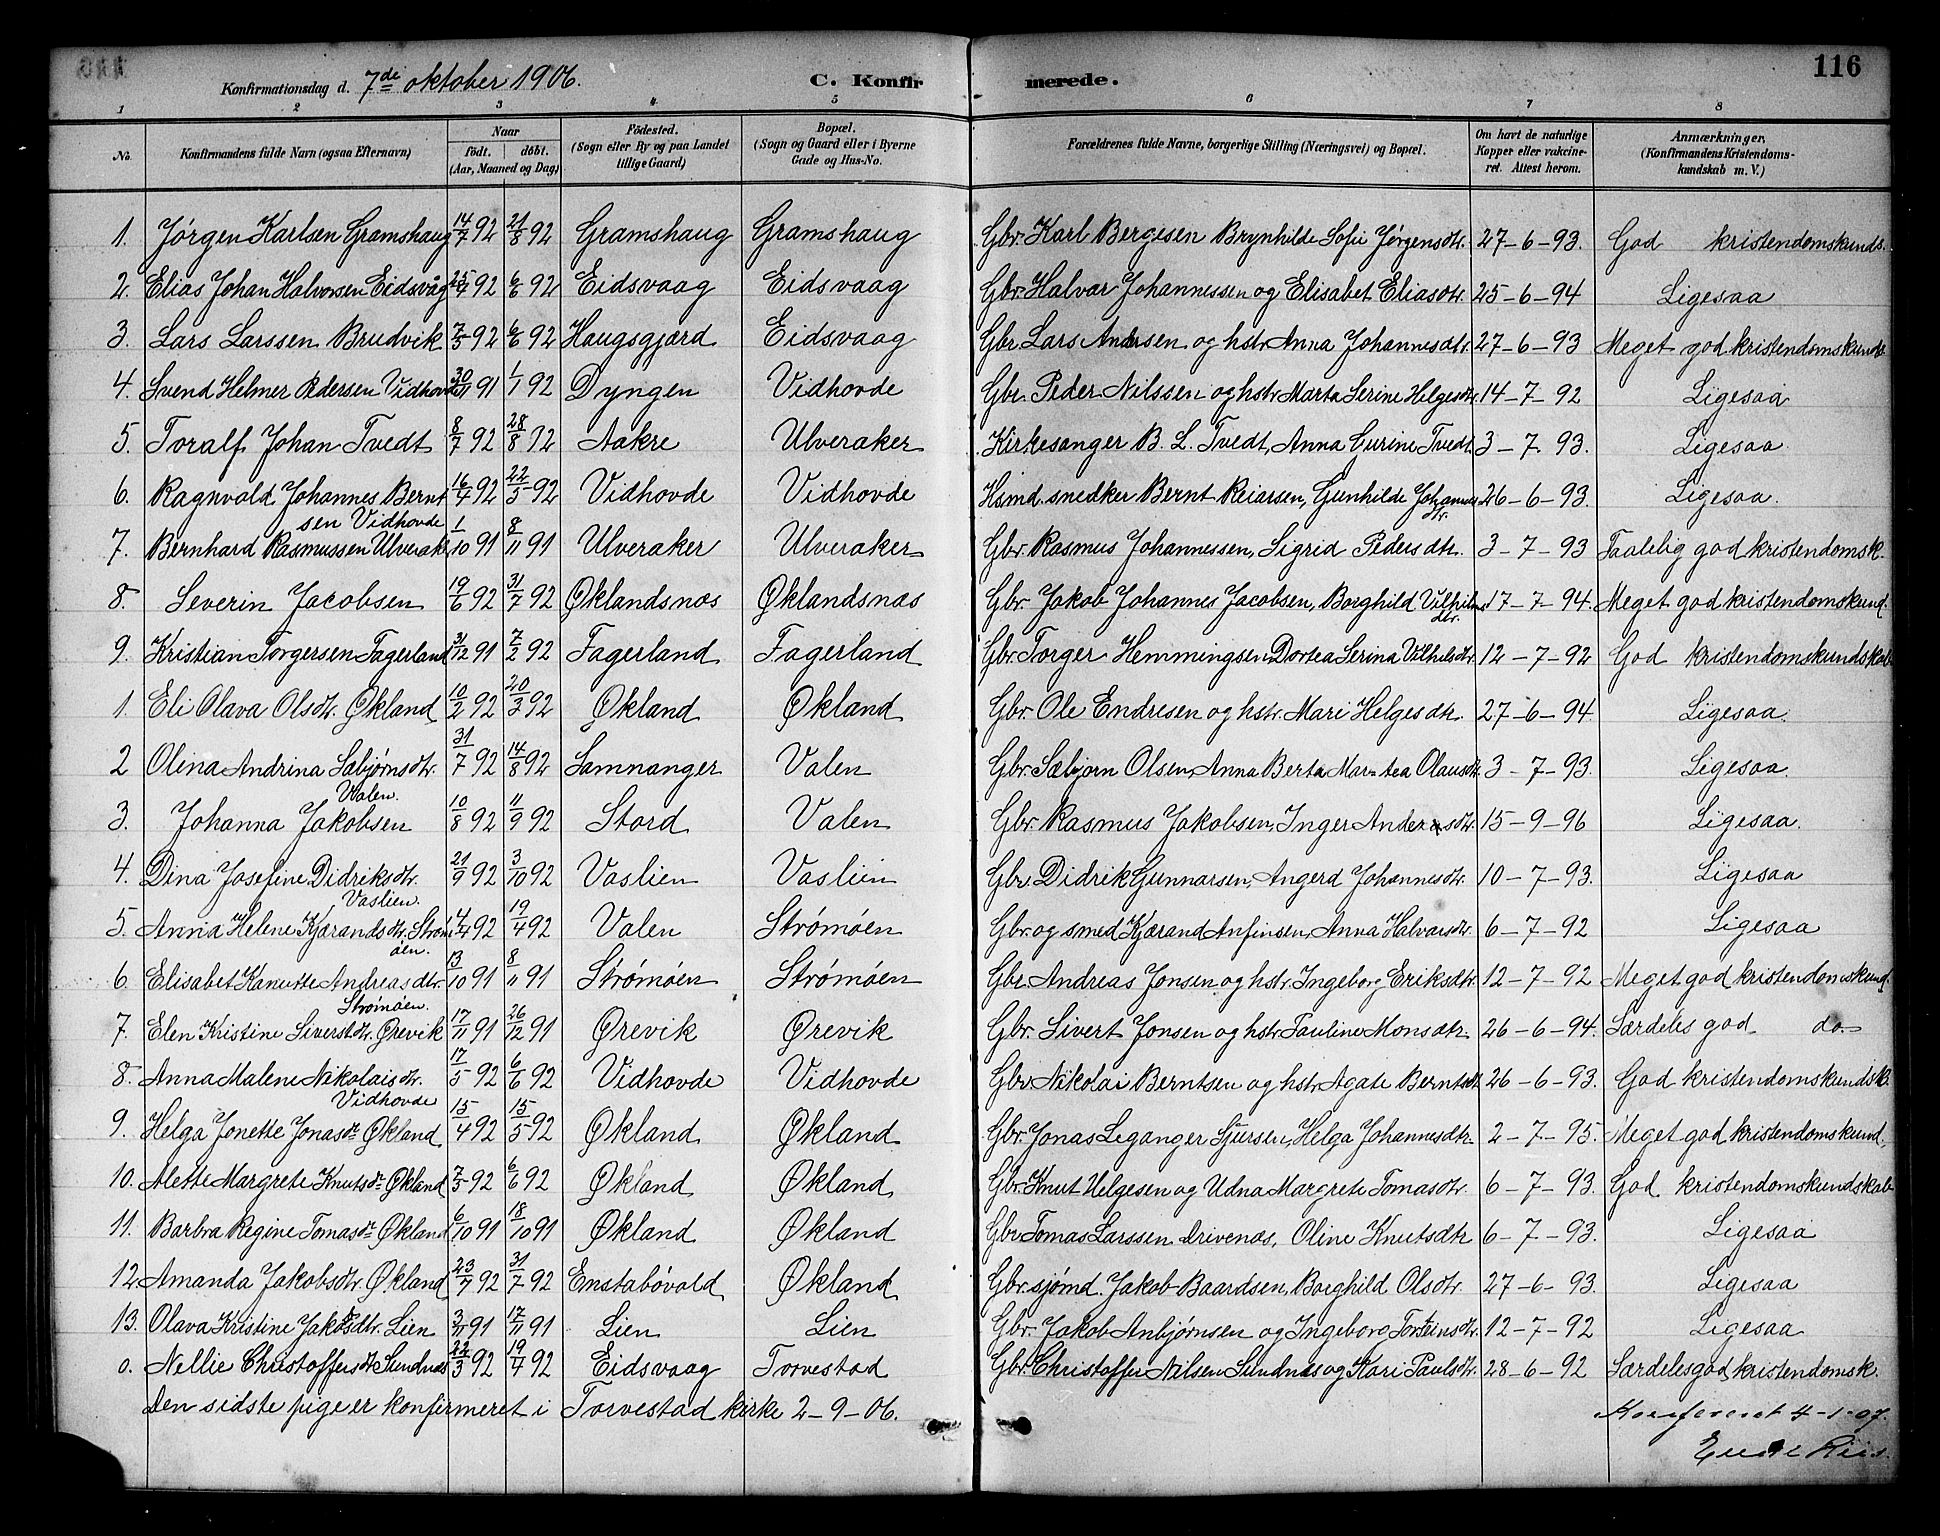 116
Konfirmationsdag d. 7de oktober 1906. C. Konfirmerede.
1 2 3 4 5 6 7 8
No. Konfirmandens fulde Navn (ogsaa Efternavn) Naar födt. döbt. (Aar, Maaned og Dag) Födested. (Sogn eller By og paa Landet tillige Gaard) Bopæl. (Sogn og Gaard eller i Byerne Gade og Hus-No. Forældrenes fulde Navne, borgerlige Stilling (Næringsvei) og Bopæl. Om havt de naturlige Kopper eller vakcineret. Attest herom. Anmærkninger, (Konfirmandens Kristendomskundskab m. V.)
1. Jørgen Karlsen Gramshaug 14/7 92 21/8 92 Gramshaug Gramshaug Gbr. Karl Bergesen Brynhilde Sofie Jørgensdtr. 27-6-93. God kristendomskunds.
2. Elias Johan Halvorsen Eidsvåg 25/4 92 6/6 92 Eidsvaag Eidsvaag Gbr. Halvar Johannessen og Elisabet Eliasdtr. 25-6-94 Ligesaa
3. Lars Larssen Brudvik 7/5 92 6/6 92 Haugsgjærd Eidsvaag Gbr. Lars Andersen og hstr. Anna Johannesdtr. 27-6-93 Meget god kristendomskunds
4. Svend Helmer Pedersen Vidhovde 30/11 91 1/1 92 Dyngen Vidhovde Gbr. Peder Nilssen og hstr. Marta Serine Helgesdtr. 14-7-92 Ligesaa
5. Toralf Johan Tvedt 8/7 92 28/8 92 Aakre Ulveraker Kirkesanger B. L. Tvedt, Anna Gurine Tvedt 3-7-93. Ligesaa.
6. Ragnvald Johannes Berntsen Vidhovde 16/4 92 22/5 92 Vidhovde Vidhovde Hsmd. snedker Bernt Reiarsen, Gunhilde Johannesdtr. 26-6-93. Ligesaa.
7. Bernhard Rasmussen Ulveraker 1/10 91 8/11 91 Ulveraker Ulveraker Gbr. Rasmus Johannessen, Sigrid Pedersdtr. 3-7-93 Taalelig god kristendomsk.
8. Severin Jacobsen 19/6 92 31/7 92 Øklandsnæs Øklandsnæs Gbr. Jakob Johannes Jacobsen, Borghild Vilhelmsdtr. 17-7-94. Meget god kristendomskund.
9. Kristian Torgersen Fagerland 31/12 91 7/2 92 Fagerland Fagerland Gbr. Torger Hemmingsen, Dortea Serina Vilhelsdtr. 12-7-92 God kristendomskundskab
1. Eli Olava Olsdtr. Økland 10/2 92 20/3 92 Økland Økland Gbr. Ole Endresen og hstr. Mari Helgesdtr. 27-6-94 Ligesaa.
2 Olina Andrina Sæbjørnsdtr. Valen. 31/7 92 14/8 92 Samnanger Valen Gbr. Sæbjørn Olsen, Anna Berta Martea Olausdtr. 3-7-93. Ligesaa.
3. Johanna Jakobsen 10/8 92 11/9 92 Stord Valen Gbr. Rasmus Jakobsen, Inger Andersdtr. 15-9-96 Ligesaa.
4. Dina Josefine Didriksdtr. Vaslien. 21/9 92 3/10 92 Vaslien Vaslien Gbr. Didrik Gunnarsen, Angerd Johannesdtr. 10-7-93. Ligesaa
5. Anna Helene Kjærandsdtr. Strømøen. 4/4 92 19/4 92 Valen Strømøen Gbr. og smed Kjærand Anfinsen, Anna Halvarsdtr. 6-7-92 Ligesaa
6 Elisabet Kanutte Andreasdtr. Strømøen. 13/10 91 8/11 91 Strømøen Strømøen Gbr. Andreas Jonsen og hstr. Ingeborg Eriksdtr. 12-7-92 Meget god kristendomskund.
7. Elen Kristine Siverstdtr. Ørevik 17/11 91 26/12 91 Ørevik Ørevik Gbr. Sivert Jonsen og hstr. Pauline Monsdtr. 26-6-94. Særdeles god do.
8. Anna Malene Nikolaisdtr. Vidhovde 17/5 92 6/6 92 Vidhovde Vidhovde Gbr. Nikolai Berntsen og hstr. Agate Berntsdt. 26-6-93. God kristendomskundsk.
9. Helga Jonette Jonasdr. Økland 15/4 92 15/5 92 Økland Økland Gbr. Jonas Leganger Sjursen, Helga Johannesdtr. 2-7-95. Meget god kristendomskund.
10. Alette Margrete Knutsdr. Økland 7/5 92 6/6 92 Økland Økland Gbr. Knut Helgesen og Udna Margrete Tomasdtr. 6-7-93. God kristendomskundskab
11. Barbra Regine Tomasdr. Økland 6/10 91 18/10 91 Økland Økland Gbr. Tomas Larssen Drivenæs, Oline Knutsdtr 6-7-93. Ligesaa
12. Amanda Jakobsdtr. Økland 23/7 92 31/7 92 Enstabövold Økland Gbr. sjømd. Jakob Baardsen, Borghild Olsdtr. 27-6-93. Ligesaa
13. Olava Kristine Jakobsdtr. Lien 3/11 91 17/11 91 Lien Lien Gbr. Jakob Anbjørnsen og Ingeborg Torsteinsdtr. 12-7-92 Ligesaa
o. Nellie Christoffersdtr. Sundnæs 22/3 92 19/4 92 Eidsvaag Torvestad Gbr. Christoffer Nilsen Sundnæs og Kari Paulsdtr. 28-6-92 Særdeles god kristendomsk.
Den sidste pige er konfirmeret i Torvestad kirke 2-9-06.
Konfereret 4-1-07.
Riis.